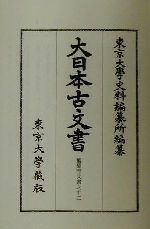 東京大學史料編纂所編纂
大日本古文書
東京大學藏版